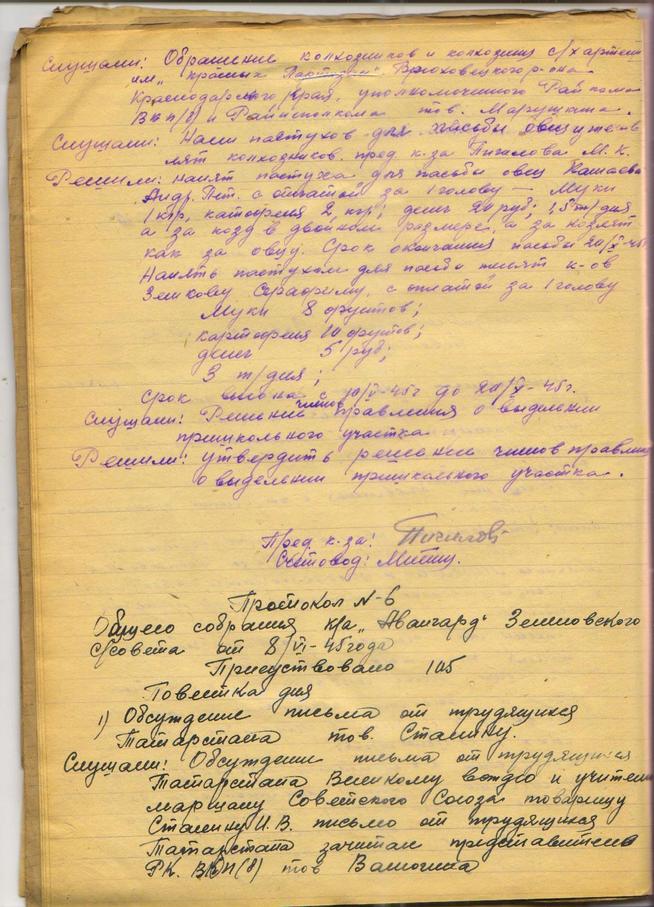 Слушали: Обращение колхозников и колхозниц с/х артели
им „Красных Партизан" Брюховецкого р-она
Краснодарского края, уполкомоченного Райкома
ВКП(б) и Райисполкома тов. Марушкина.
Слушали: Найм пастухов для пасьбы овец и телят
лят колхозников. пред. к-за Пигилова М. К.
Решили: нанят пастуха для пасьбы овец
Андр. Пет. с оплатой за 1 голову — Муки
1 кгр, картофеля 2 кгр, денег 20 руб; 1,5 т/дня
а за козу в двойном размере, а за козлят
как за овцу. Срок окончания пасьбы 20/X-45г
Нанять пастухом для пасьбы телят к-ов
Зенкову Серафиму, с оплатой за 1 голову
Муки 8 фунтов;
картофеля 10 фунтов;
денег 5 руб;
3 т/дня;
Срок выгона с 10/V-45г до 20/X-45г.
Слушали: Решении членов правления о выделении
пришкольного участка
Решили: утвердить решении членов правлен
о выделении пришкольного участка.
Пред. к-за: Пигилов
Счетовод: Митиц.
Протокол N-6
Общего собрания к/за „Авангард" Зенновского
с/совета от 8/VI-45 года
Присуствовало 105
Повестка дня
1) Обсуждение письма от трудящихся
Татарстана тов. Сталину.
Слушали: Обсуждении письма от трудящихся
Татарстана Великому вождю и учителю
маршалу Советского Союза товарищу
Сталину И. В. письмо от трудящихся
Татарстана зачитан представителе
РК. ВКП(б) тов Валюгина